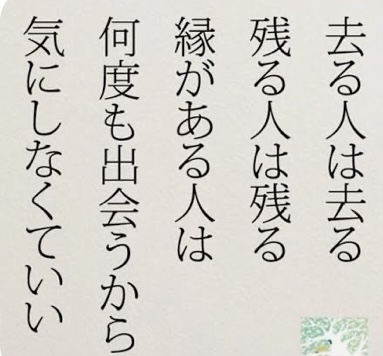 去る人は去る
残る人は残る
縁がある人は
何度も出会うから
気にしなくていい